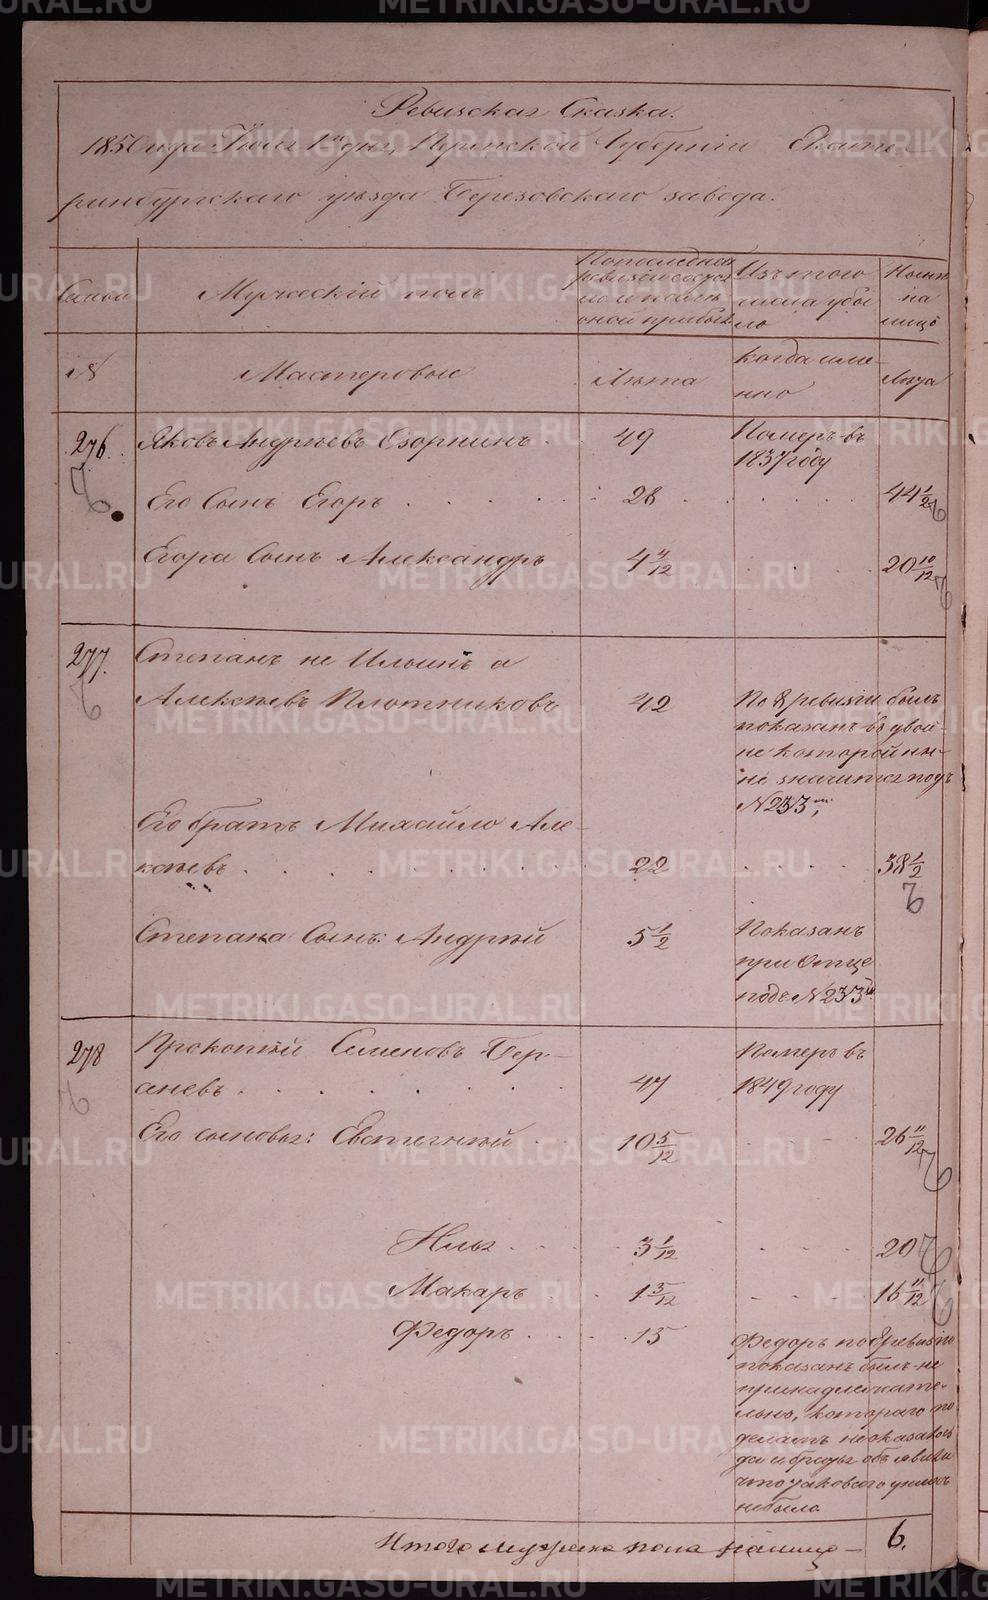 Ревизская Сказка.
1850 года Июня 1 дня, Пермской Губернии Екате-
ринбургского уѣзда Березовскаго завода.
Семьи
Мужескій полъ
По последней ревизіи состояло и после оной прибыло
Изъ того числа убыло
Ныне на лицо
№
Мастеровые
Лѣта
когда име-
нно
Лѣта
276.
Яковъ Андреевъ Озорнинъ
49
Померъ въ
1837 году
Его Сынъ Егоръ
28
44 1/2
Егора Сынъ Александръ
4 4/12
20 10/12
277.
Степанъ не Ильинъ а
Алексѣевъ Плотниковъ
42
По 8 ревизіи былъ
показанъ въ двой-
не которой ны-
не значится подъ
№ 233 м,
Его братъ Михайло Але-
ксѣевъ
22
38 1/2
Степана Сынъ: Андрей
5 1/2
Показанъ
при Отце
подъ № 233 м
278
Прокопій Семеновъ Бер-
аневъ
47
Померъ въ
1849 году
Его сыновья: Евстигнѣй
10 5/12
26 11/12
Илья
3 1/12
20
Макаръ
1 3/12
16 11/12
Федоръ
15
Федоръ по 8 ревизіи
показанъ былъ не
принадлежате-
льно, котораго по
деламъ не оказалось
да и братья объявили
что таковаго у нихъ
небыло
Итого мужеска пола налицо —
6.
METRIKI.GASO-URAL.RU